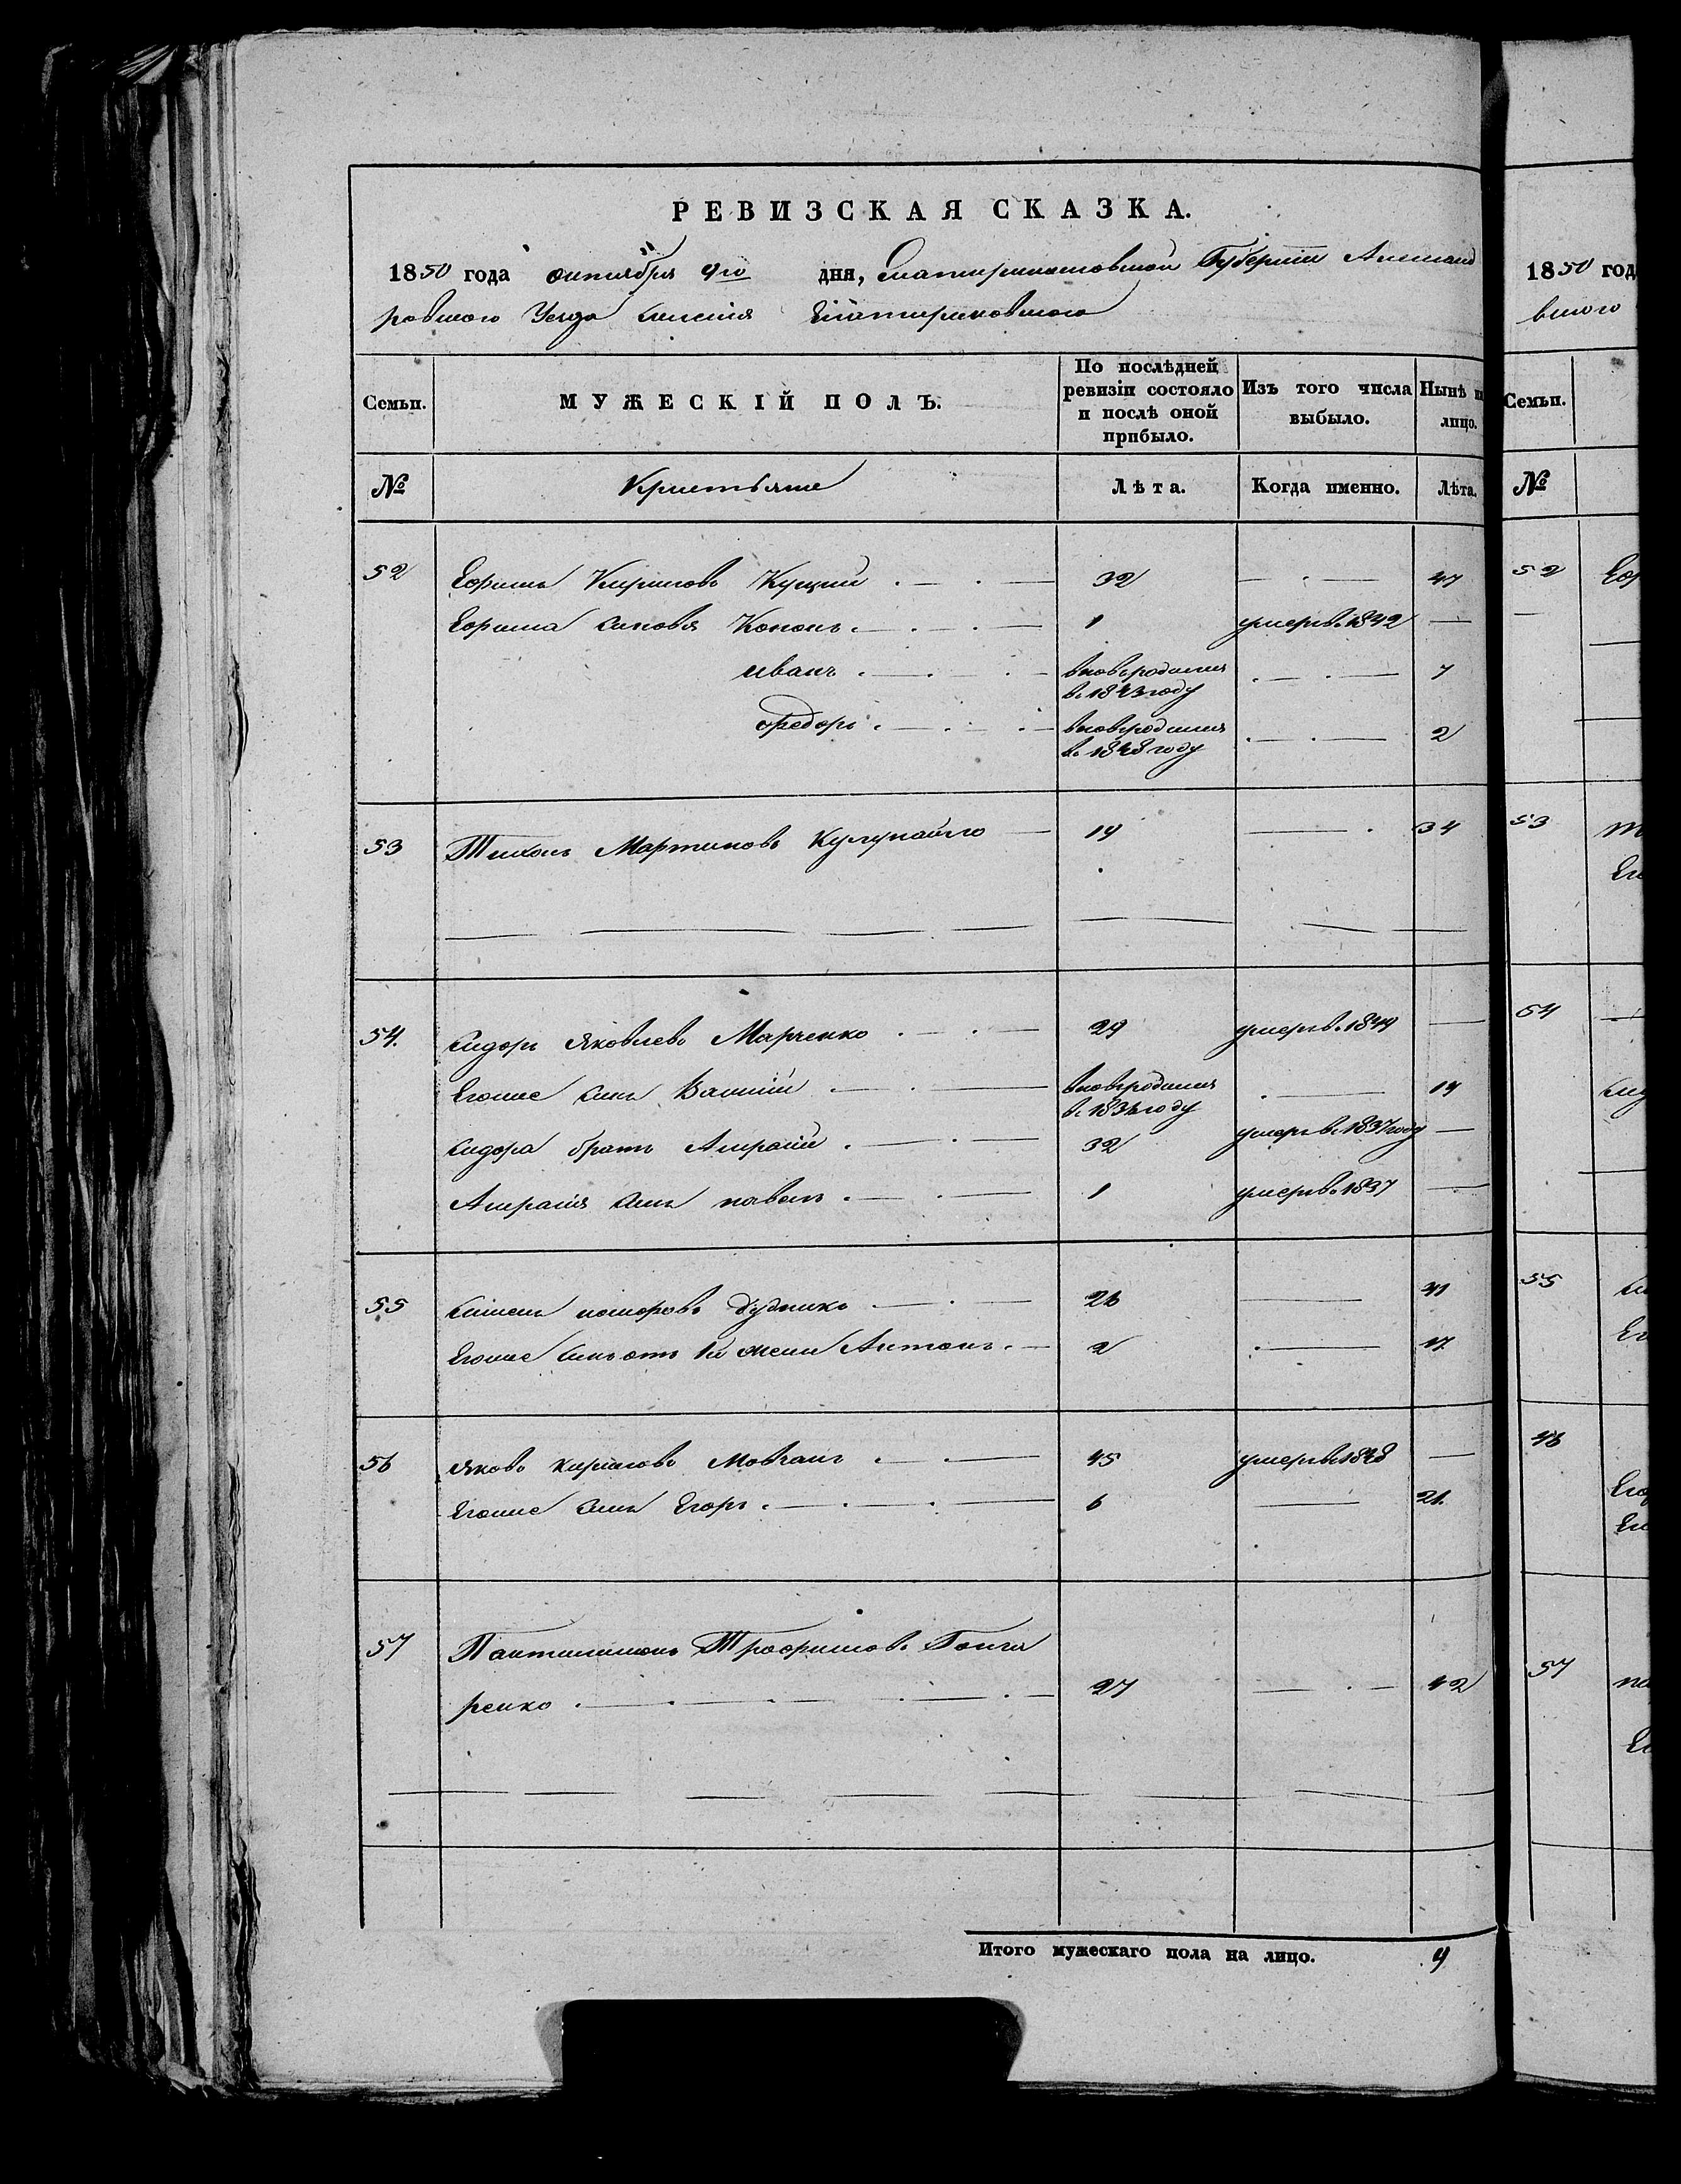 РЕВИЗСКАЯ СКАЗКА.
1850 года октября 9го дня, Екатеринославской Губернии Александ
ровского Уезда селения Екатериновского
Семьи. МУЖЕСКІЙ ПОЛЪ. По послѣдней ревизіи состояло и послѣ оной прибыло. Изъ того числа выбыло. Нынѣ на лицо.
№ Крестьяне Лѣта. Когда именно. Лѣта.
52 Ефимъ Кириловъ Куцый 32 47
Ефима сыновя Кононъ 1 умеръ в. 1842
иванъ вновьродился в. 1843 году 7
Федоръ вновьродился в. 1848 году 2
53 Тихонъ Мартиновъ 19 34
54. Сидоръ Яковлевъ Марченко 29 умеръ в. 1849
Егоже сынъ вновьродился в. 1836 году 14
Сидора братъ 32 умеръ в. 1837 году
сынъ павелъ 1 умеръ в. 1837
55 Дудникъ 26 41
Егоже сынъ отъ 1й жены Антонъ 2 17.
56 Яковъ Кириловъ Мовчанъ 45 умеръ в 1848
Егоже сынъ Егоръ 6 21.
57 Пантилимонъ Трофимовъ Гонча
ренко 27 42
Итого мужескаго пола на лицо. 9
1850 год
вского
Семьи.
№
52 Еф
53
54
55
57